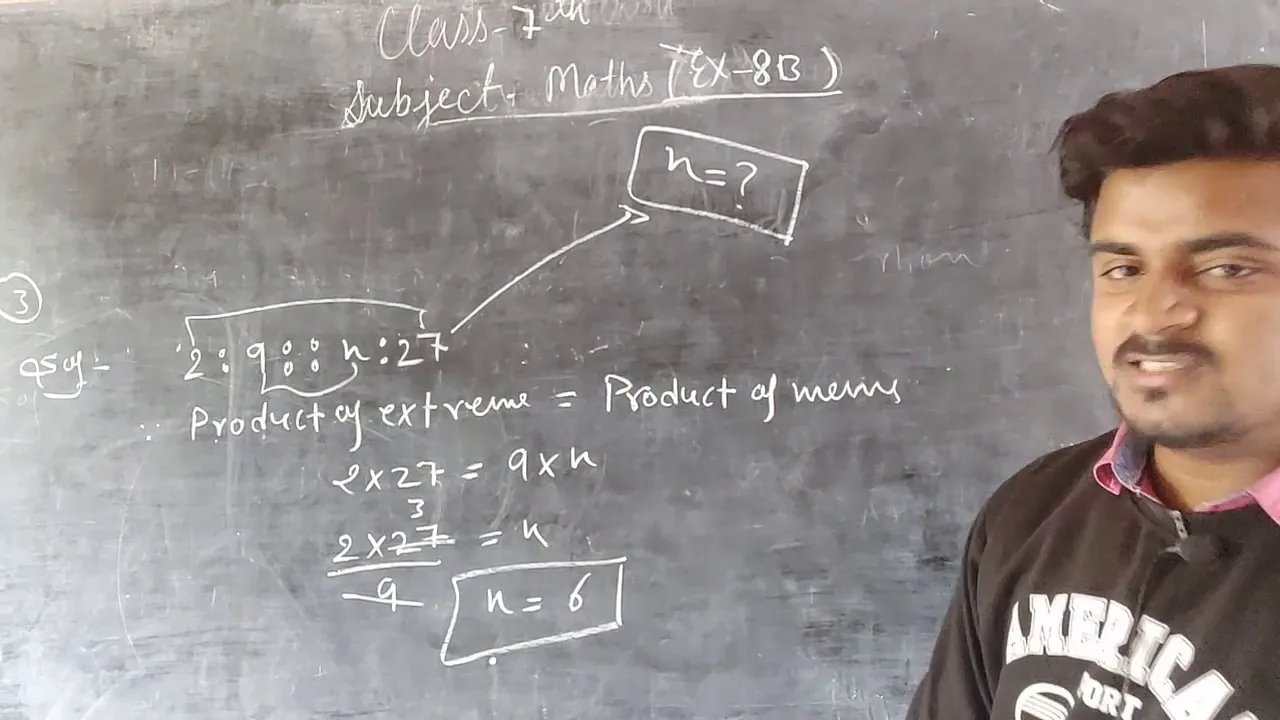 Class-7th
Subject- Maths (EX-8B)
n=?
3
2:9::n:27
∵ Product of extreme = Product of mems
2×27 = 9×n
3
2×27 = n
9
n = 6
AMERICA
PORT